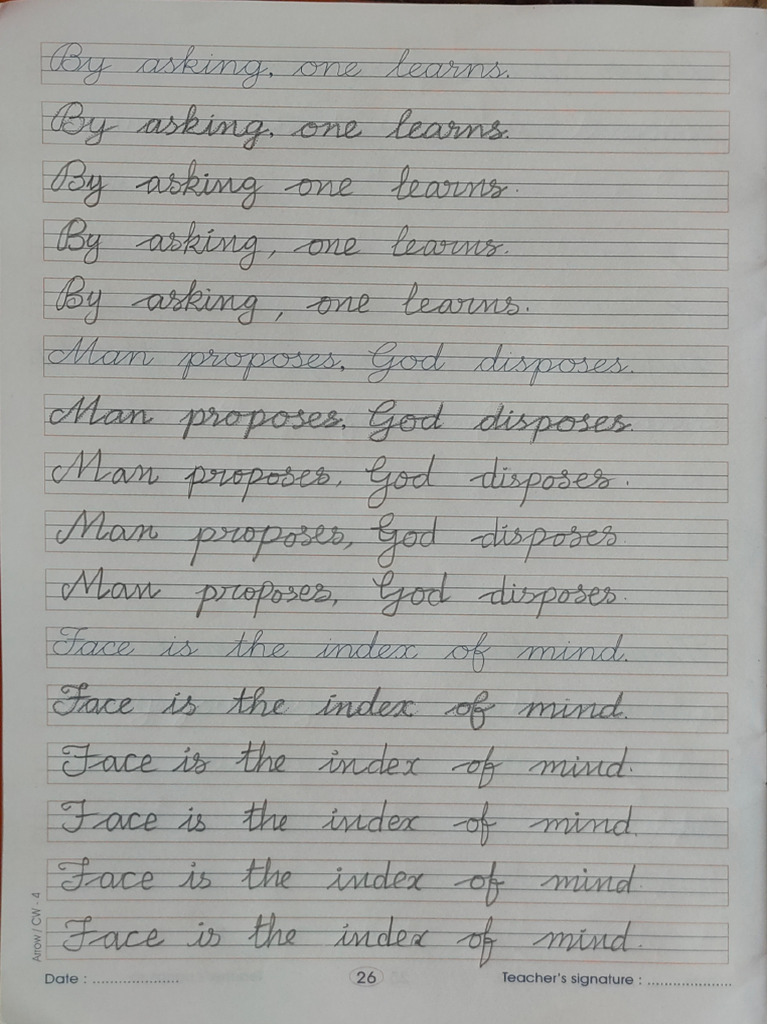 By asking, one learns.
By asking, one learns.
By asking one learns.
By asking, one learns.
By asking, one learns.
Man proposes, God disposes.
Man proposes, God disposes.
Man proposes, God disposes.
Man proposes, God disposes.
Man proposes, God disposes.
Face is the index of mind.
Face is the index of mind.
Face is the index of mind.
Face is the index of mind.
Face is the index of mind.
Face is the index of mind.
Arrow / CW - 4
Date : .................... 26 Teacher's signature : ....................